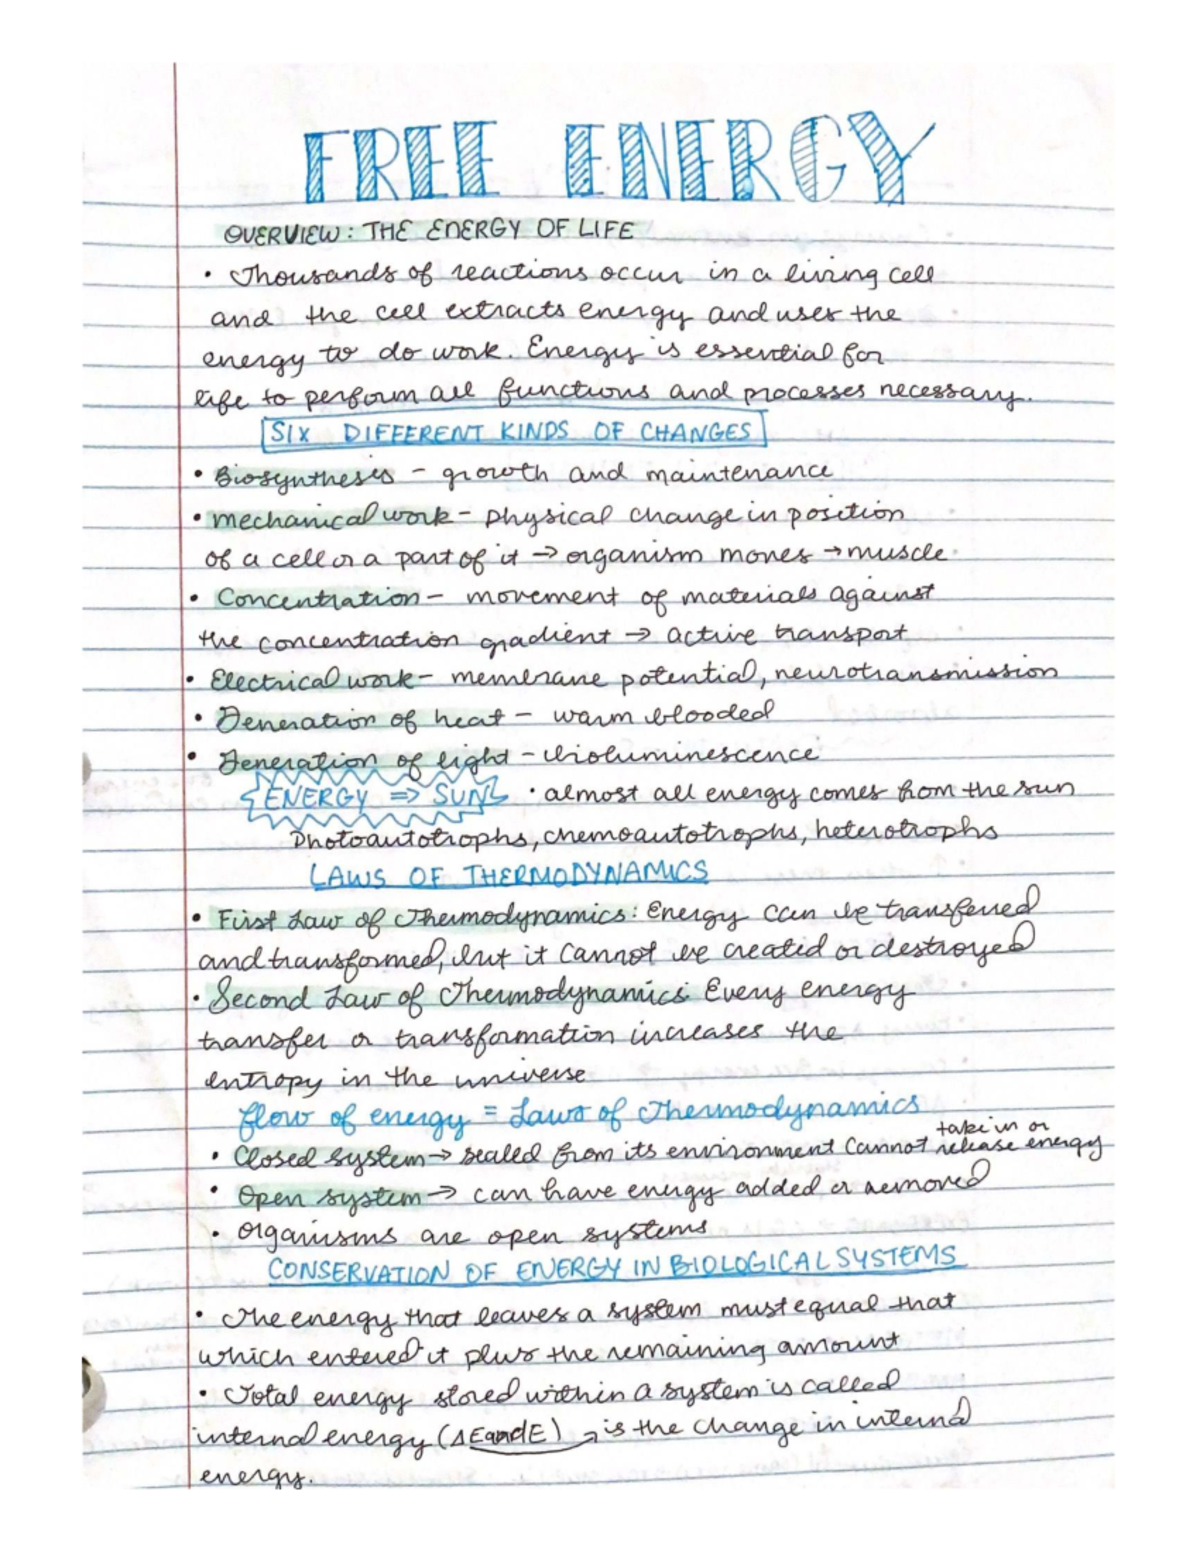 FREE ENERGY
OVERVIEW: THE ENERGY OF LIFE
• Thousands of reactions occur in a living cell
and the cell extracts energy and uses the
energy to do work. Energy is essential for
life to perform all functions and processes necessary.
SIX DIFFERENT KINDS OF CHANGES
• Biosynthesis – growth and maintenance
• mechanical work – physical change in position
of a cell or a part of it → organism moves → muscle
• Concentration – movement of materials against
the concentration gradient → active transport
• Electrical work – membrane potential, neurotransmission
• Generation of heat – warm blooded
• Generation of light – bioluminescence
ENERGY ⇒ SUN • almost all energy comes from the sun
Photoautotrophs, chemoautotrophs, heterotrophs
LAWS OF THERMODYNAMICS
• First Law of Thermodynamics: Energy can be transferred
and transformed, but it cannot be created or destroyed
• Second Law of Thermodynamics: Every energy
transfer or transformation increases the
entropy in the universe
flow of energy = Laws of Thermodynamics
take in or
• Closed system → sealed from its environment cannot release energy
• Open system → can have energy added or removed
• Organisms are open systems
CONSERVATION OF ENERGY IN BIOLOGICAL SYSTEMS
• The energy that leaves a system must equal that
which entered it plus the remaining amount
• Total energy stored within a system is called
internal energy (ΔE and E) → is the change in internal
energy.